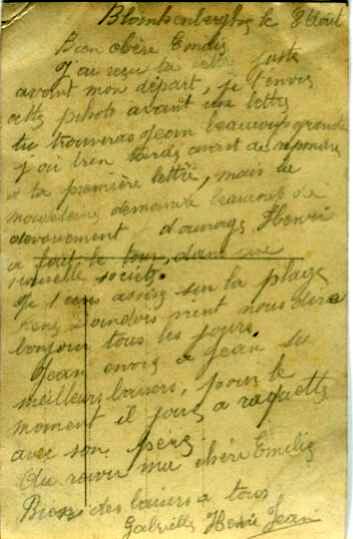 Blankenberghe le 8 Août
Bien chère Emilie
J'ai reçu ta lettre juste
avant mon départ, je t'envoie
cette photo avant une lettre
tu trouveras Jean beaucoup grandi
j'ai bien tardé avant de répondre
à ta première lettre, mais le
nouveau demande beaucoup de
dévouement d'ouvrage Henri
a fait le tour, dans une
nouvelle société.
Je suis assise sur la plage
vient nous dire
bonjour tous les jours.
Jean envoie a Jean ses
meilleurs baisers, pour le
moment il joue a raquette
avec son père.
Au revoir ma chère Emilie
Bien des baisers a tous
Gabrielle Henri Jean